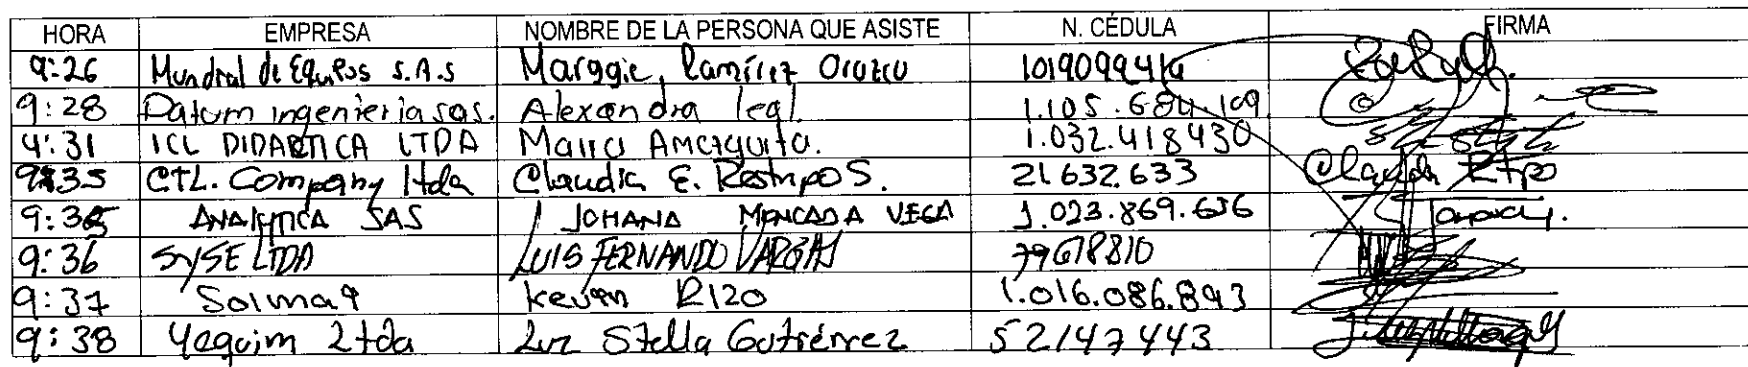 HORA EMPRESA NOMBRE DE LA PERSONA QUE ASISTE N. CÉDULA FIRMA
9:26 Mundial de Equipos S.A.S Marggie Ramírez Orozco
9:28 Datum ingenieria sas. Alexandra leal. 1.105.684.109
9:31 ICL DIDACTICA LTDA Maira Amezquita. 1.032.418430
9:35 CTL. Company ltda Claudia E. Restrepo S. 21.632.633 Claudia Rtpo
9:36 ANALYTICA SAS JOHANA MONCADA VEGA 1.023.869.636
9:36 SYSE LTDA LUIS FERNANDO VARGAS 79618810
9:37 Solmaq Keven RIZO 1.016.086.893
9:38 Yequim Ltda Luz Stella Gutiérrez 52147443